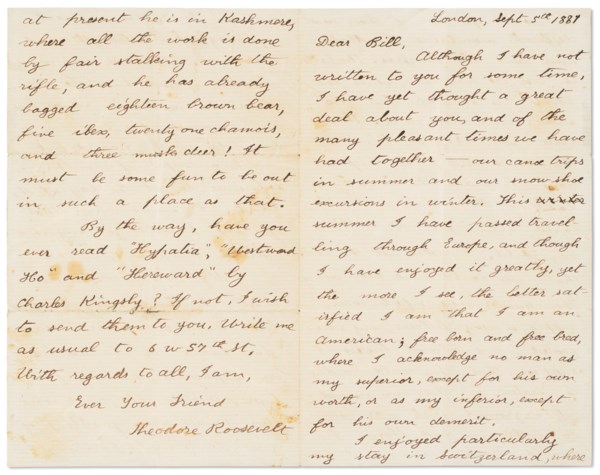 London, Sept 5th 1881
Dear Bill,
Although I have not
written to you for some time,
I have yet thought a great
deal about you, and of the
many pleasant times we have
had together — our canoe trips
in summer and our snow shoe
excursions in winter. This
summer I have passed travel-
ling through Europe, and though
I have enjoyed it greatly, yet
the more I see, the better sat-
isfied I am that I am an
American; free born and free bred,
where I acknowledge no man as
my superior, except for his own
worth, or as my inferior, except
for his own demerit.
I enjoyed particularly
my stay in Switzerland, where
at present he is in Kashmere,
where all the work is done
by fair stalking with the
rifle, and he has already
bagged eighteen brown bear,
five ibex, twenty one chamois,
and three musk deer! It
must be some fun to be out
in such a place as that.
By the way, have you
ever read "Hypatia", "Westward
Ho" and "Hereward" by
Charles Kingsly? If not, I wish
to send them to you. Write me
as usual to 6 W 57th St.
With regards to all, I am,
Ever Your Friend
Theodore Roosevelt